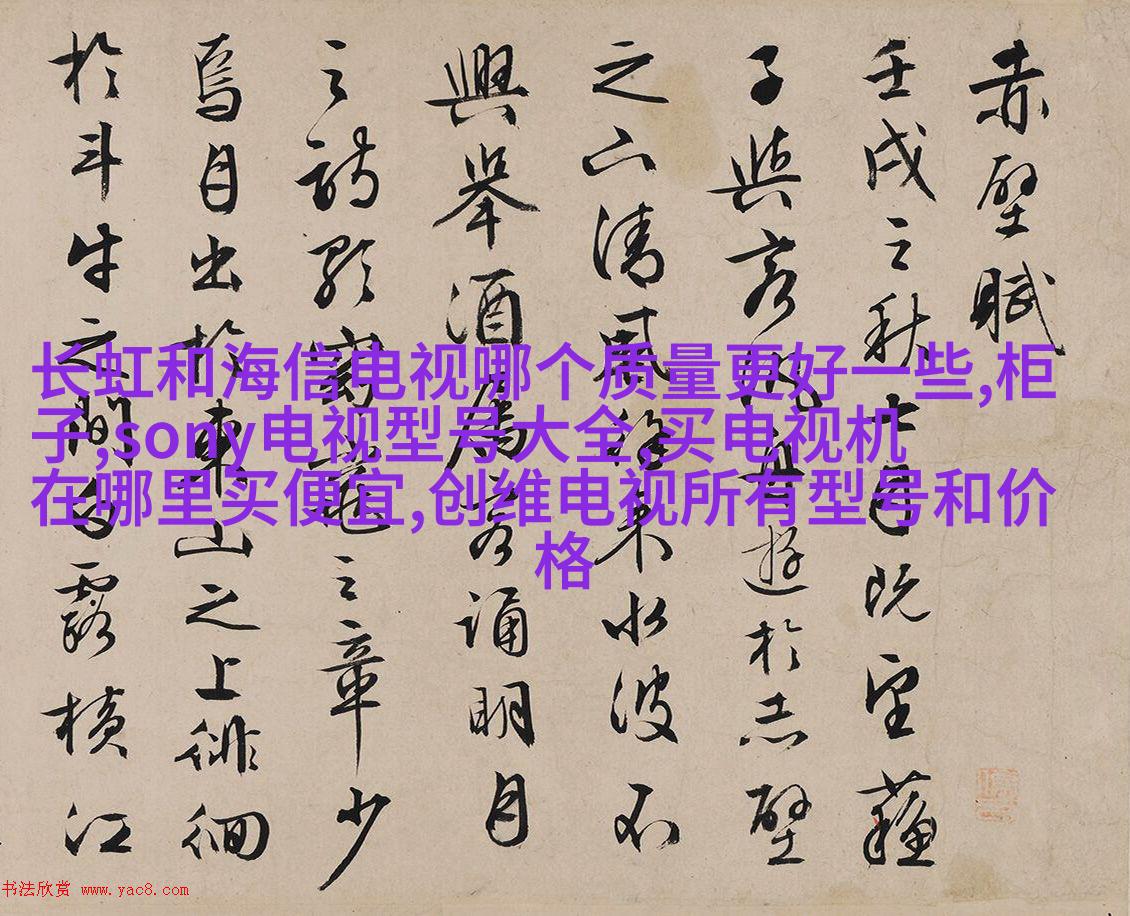 赤壁賦
壬戌之秋七月既望蘓
子與客泛舟遊於赤壁
之下清風徐來水波不
興舉酒屬客誦明月
之詩歌窈窕之章少
焉月出於東山之上徘徊
於斗牛之間白露横江
长虹和海信电视哪个质量更好一些,柜
子,sony电视型号大全,买电视机
在哪里买便宜,创维电视所有型号和价
格
书法欣赏 www.yac8.com